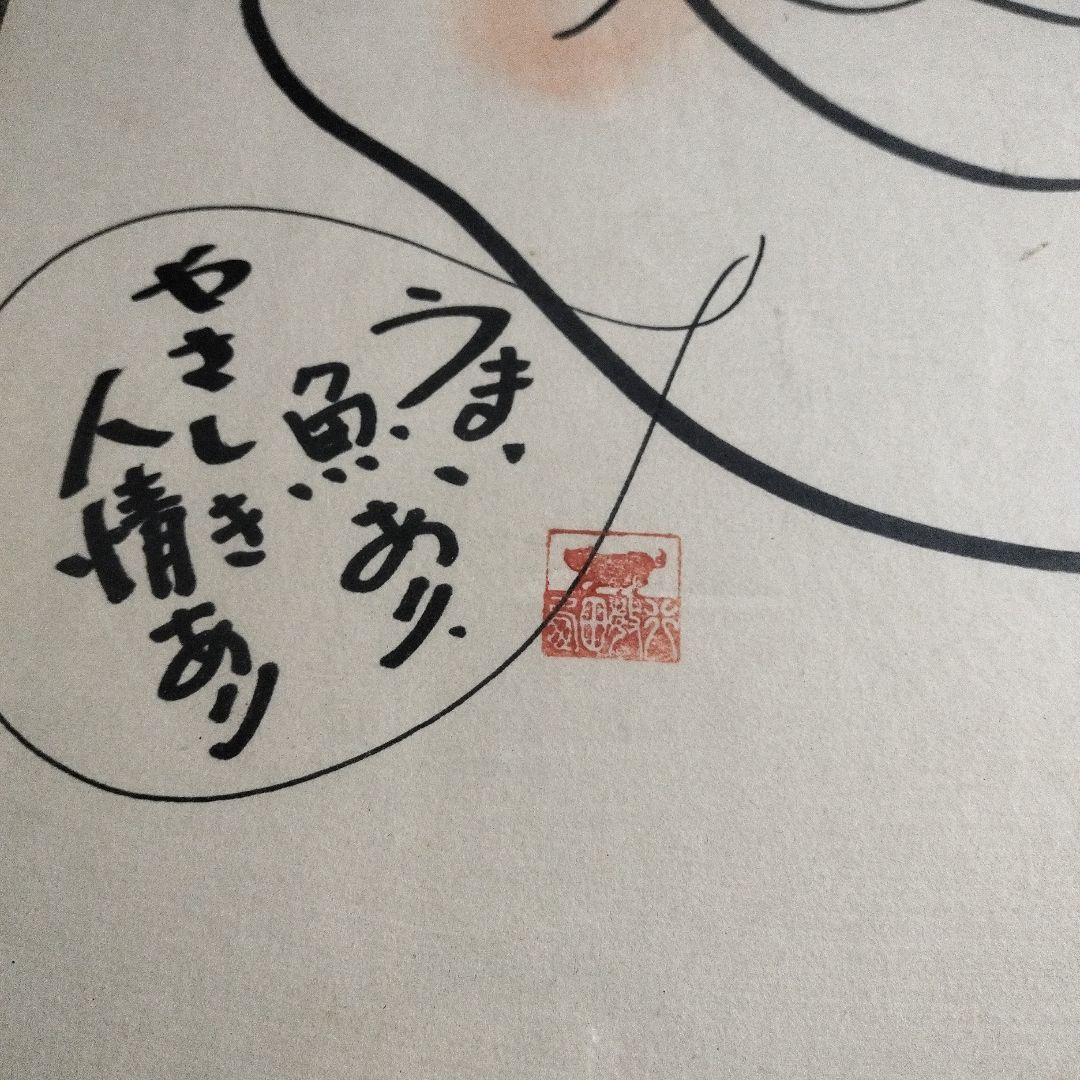 うまい
魚あり、
やさしき
人情あり